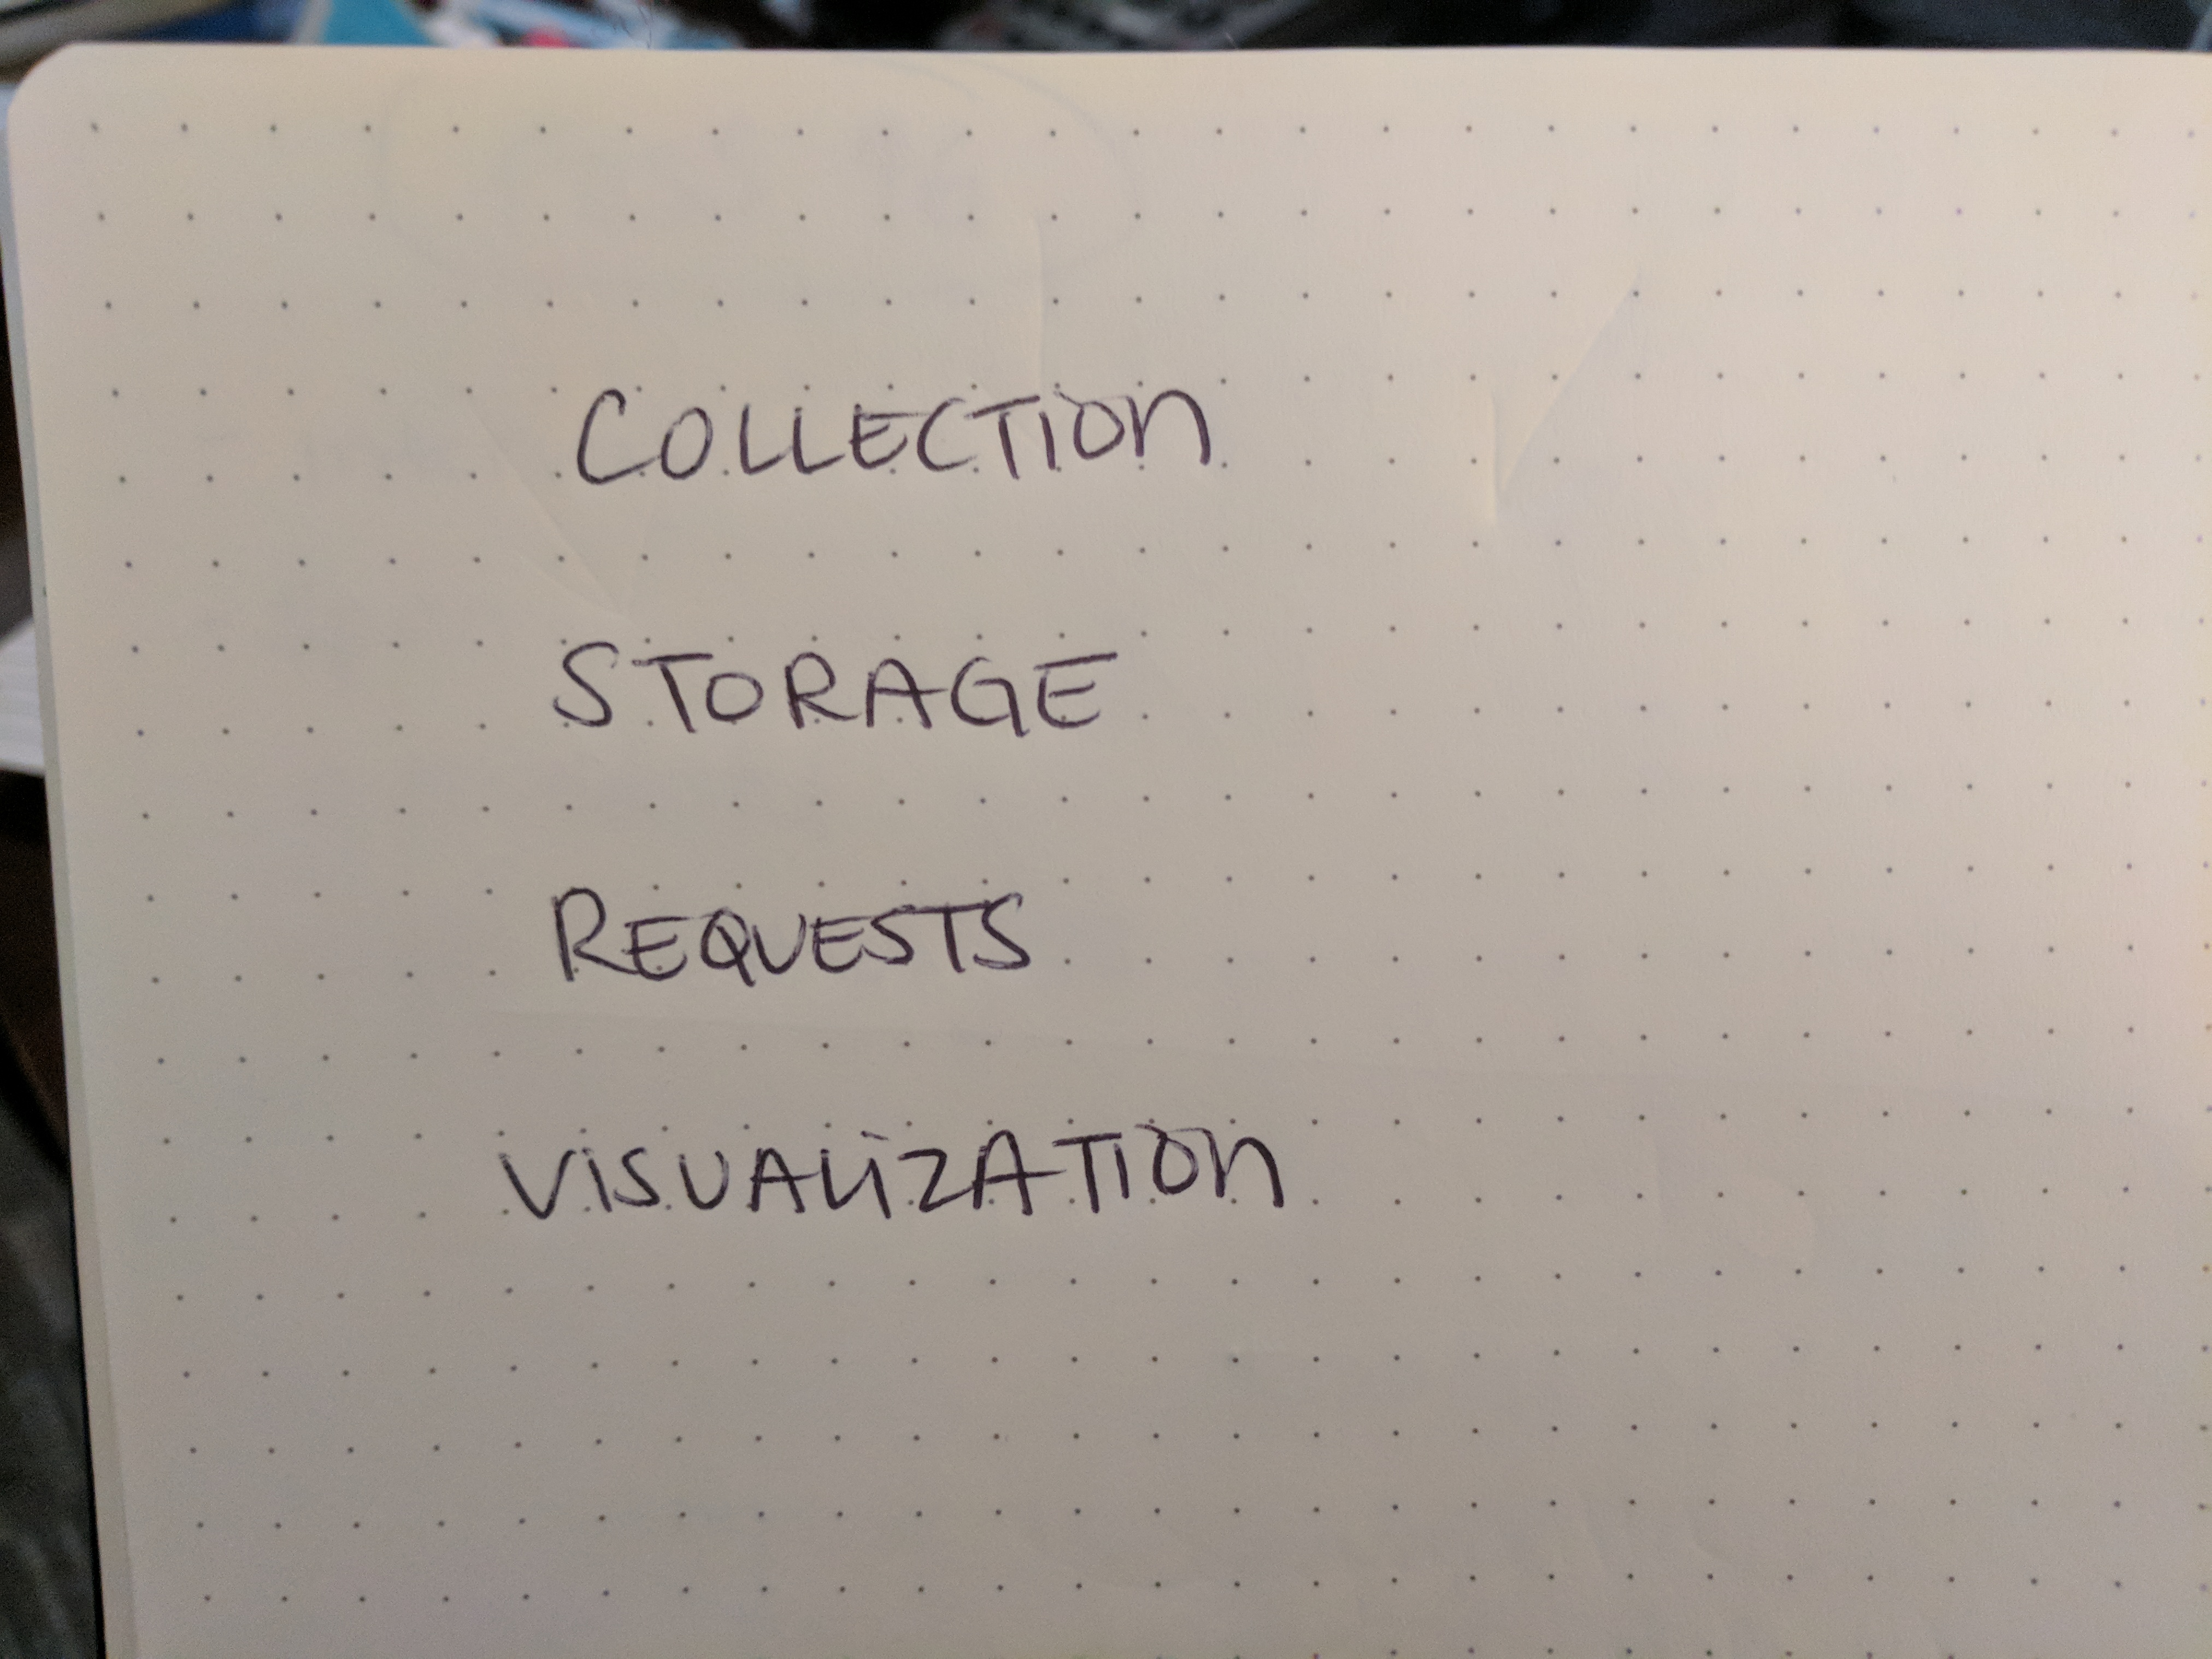 COLLECTION
STORAGE
REQUESTS
VISUALIZATION